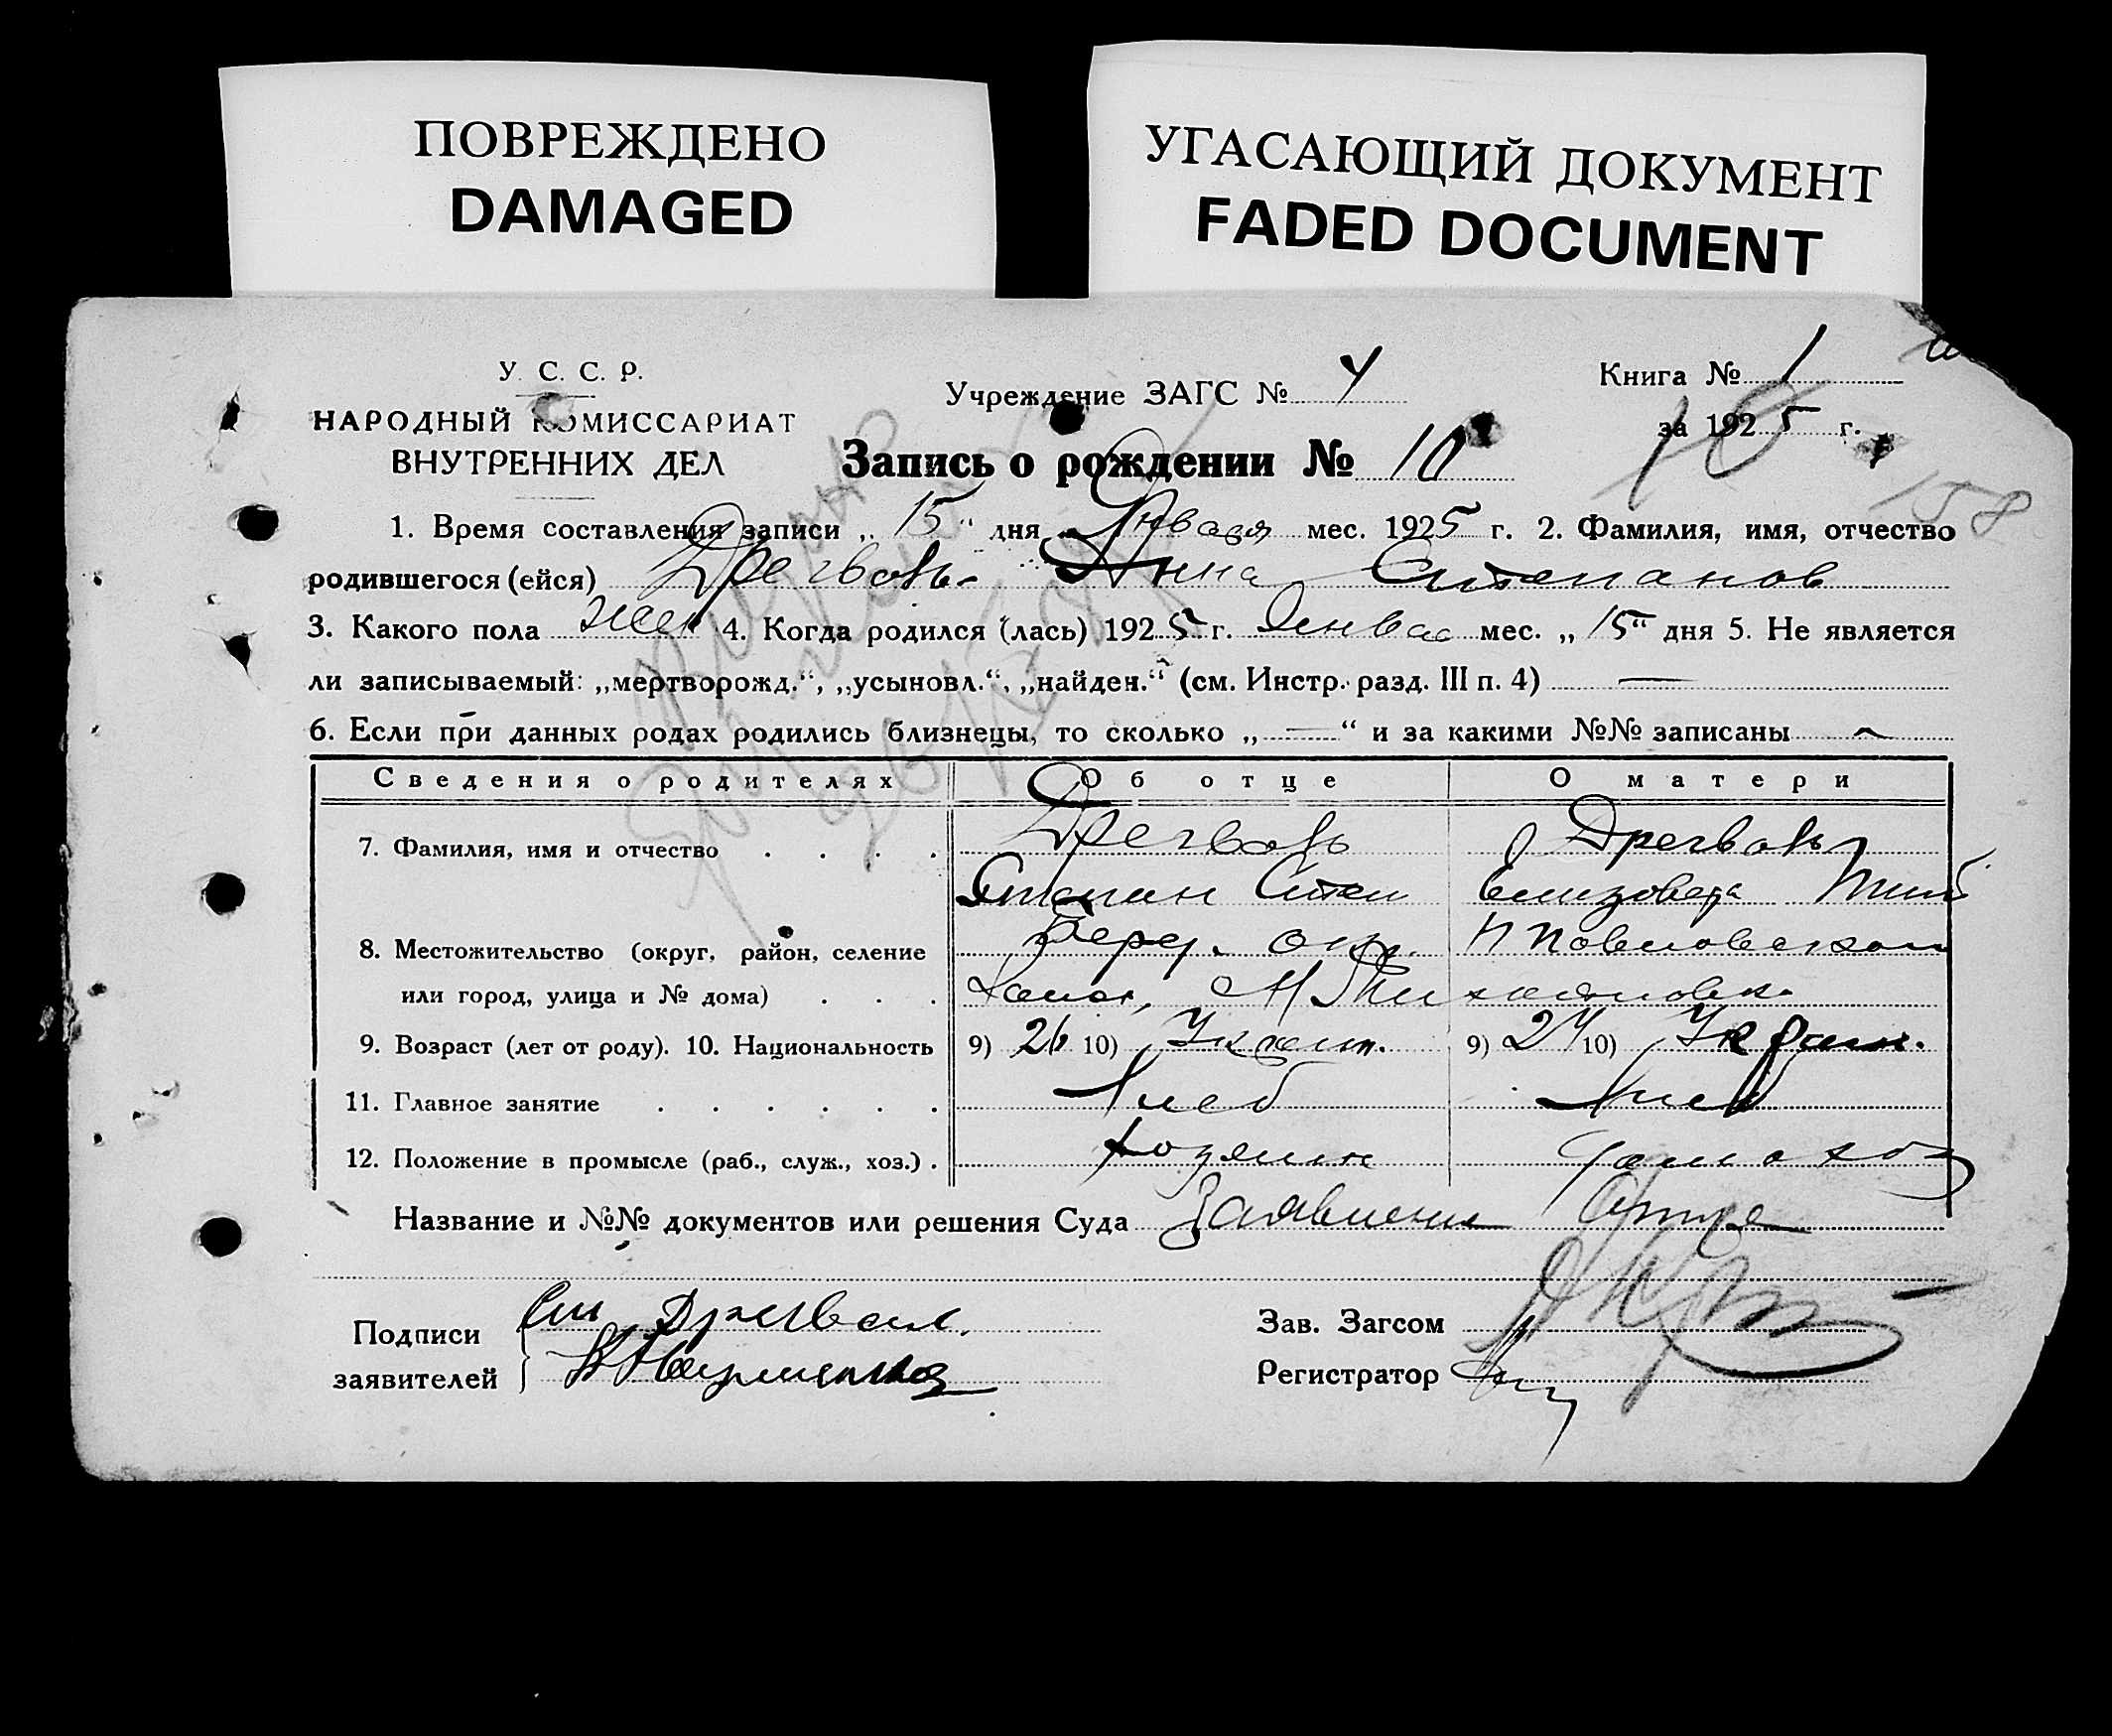 ПОВРЕЖДЕНО
DAMAGED
УГАСАЮЩИЙ ДОКУМЕНТ
FADED DOCUMENT
У. С. С. Р.
НАРОДНЫЙ КОМИССАРИАТ
ВНУТРЕННИХ ДЕЛ
Учреждение ЗАГС № 4
Книга № 1
за 1925 г.
Запись о рождении № 10
158
1. Время составления записи „ 15 “ дня Января мес. 1925 г. 2. Фамилия, имя, отчество
родившегося (ейся) Дрегваль Анна Степанов
3. Какого пола жен 4. Когда родился (лась) 1925 г. Январ мес. „ 15 “ дня 5. Не является
ли записываемый: „мертворожд.“, „усыновл.“, „найден.“ (см. Инстр. разд. III п. 4) —
6. Если при данных родах родились близнецы, то сколько „ — “ и за какими №№ записаны
Сведения о родителях Об отце О матери
7. Фамилия, имя и отчество . . . . Дрегваль Дрегваль
Степан Степ Елизовета
8. Местожительство (округ, район, селение Берд. окр.
или город, улица и № дома) . . .
9. Возраст (лет от роду). 10. Национальность 9) 26 10) Украин. 9) 24 10) Украин.
11. Главное занятие . . . . . . Хлеб Хлеб
12. Положение в промысле (раб., служ., хоз.) . хозяин домохоз
Название и №№ документов или решения Суда Заявлени Отца
Подписи
заявителей
Ст Дрегвал
Зав. Загсом
Регистратор